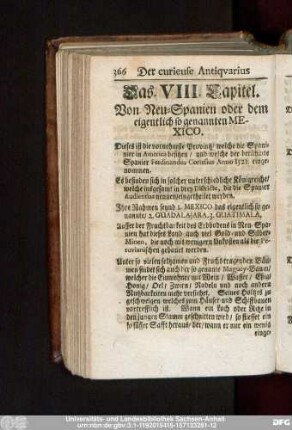 366 Der curieuse Antiqvarius
Das VIII. Capitel.
Von Neu-Spanien oder dem
eigentlich so genannten ME-
XICO.
Dieses ist die vornehmste Provintz/ welche die Spani-
er in America besitzen/ und welche der berühmte
Spanier Ferdinandus Cortesius Anno 1521. einge-
nommen.
Es befinden sich in solcher unterschiedliche Königreiche/
welche insgesamt in drey Districte, die die Spanier
Audientias nennen/ eingetheilet werden.
Ihre Nahmen seynd 1. MEXICO das eigentlich so ge-
nannte 2. GUADALAJARA 3. GUATIMALA.
Ausser der Fruchtbarkeit des Erdbodens in Neu-Spa-
nien hat dieses Land auch viel Gold- und Silber-
Minen, die noch mit wenigern Unkosten als die Pe-
ruvianischen gebauet werden.
Unter so vielen seltzamen und Fruchtbringenden Bäu-
men findet sich auch der so genante Maguey-Baum/
welcher die Einwohner mit Wein/ Wasser/ Eßig
Honig/ Oel/ Zwirn/ Nadeln und noch andern
Nutzbarkeiten mehr versiehet. Seines Holtzes zu
geschweigen welches zum Häuser und Schiffbauen
vortrefflich ist. Wann ein Loch oder Ritze in
den jungen Stamm geschnitten wird/ so fliesset ein
so süsser Safft heraus/ der/ wann er nur ein wenig
einge-
Universitäts- und Landesbibliothek Sachsen-Anhalt
urn:nbn:de:gbv:3:1-1192015415-157133261-12